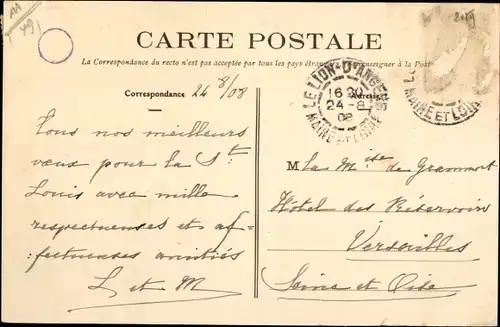 49)
CARTE POSTALE
La Correspondance du recto n'est pas acceptée par tous les pays étrangers renseigner à la Poste
Correspondance 24/8/08
Adresse
LE LION-D'ANGERS
16 30
24-8
08
MAINE ET LOIRE
LE
MAINE ET LOIRE
Tous nos meilleurs
vœux pour la St
Louis avec mille
respectueuses et af-
:fectueuses amitiés
L et M
M La Mise de Grammont
Hôtel des Réservoirs
Versailles
Seine et Oise